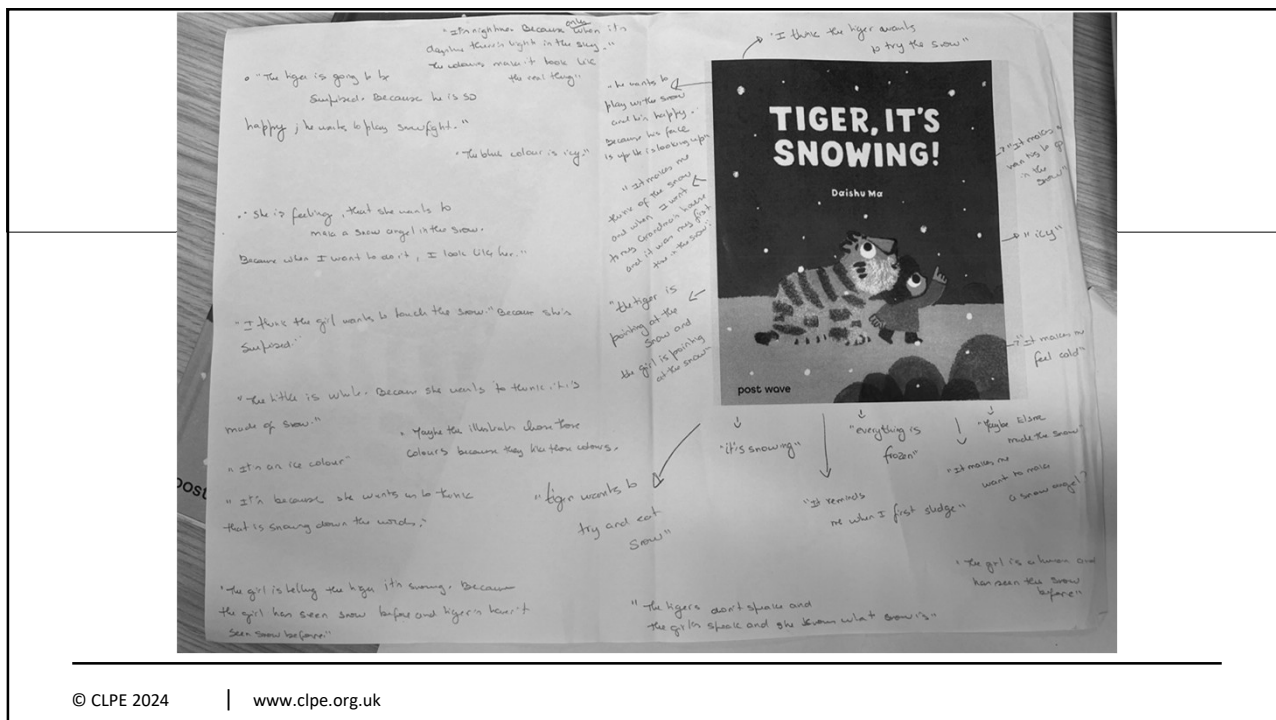 "It's nightime. Because only when it's
daytime there is light in the sky."
The colours make it look like
the real thing"
"The tiger is going to be
surpised. Because he is so
happy; he wants to play snowfight."
"The blue colour is icy"
"She is feeling, that she wants to
make a snow angel in the snow.
Because when I want to do it, I look like her."
"I think the girl wants to touch the snow." Because she is
surpised."
"The tittle is white. Because she wants to think it is
made of snow."
"Maybe the illustrator chose those
colours because they like those colours.
"It's an ice colour"
"It's because she wants us to think
that is snowing down the words."
"The girl is telling the tiger it's snowing. Because
the girl has seen snow before and tigers haven't
seen snow before."
"I think the tiger wants
to try the snow"
"he wants to
play with the snow
and he is happy.
Because his face
is up he is looking up"
"It makes me
think of the snow
and when I went
to my Grandma's house
and it was my first
time in the snow."
"the tiger is
pointing at the
snow and
the girl is pointing
at the snow"
TIGER, IT'S
SNOWING!
Daishu Ma
post wave
"It makes
wants to go
in the
snow"
"icy"
"It makes me
feel cold"
"it's snowing"
"everything is
frozen"
"Maybe
made the snow"
"tiger wants to
try and eat
snow"
"It reminds
me when I first sledge"
"It makes me
want to make
a snow angel"
"The girl is a human and
has seen the snow
before"
"The tigers don't speak and
the girls speak and she knows what snow is"
post
© CLPE 2024 | www.clpe.org.uk